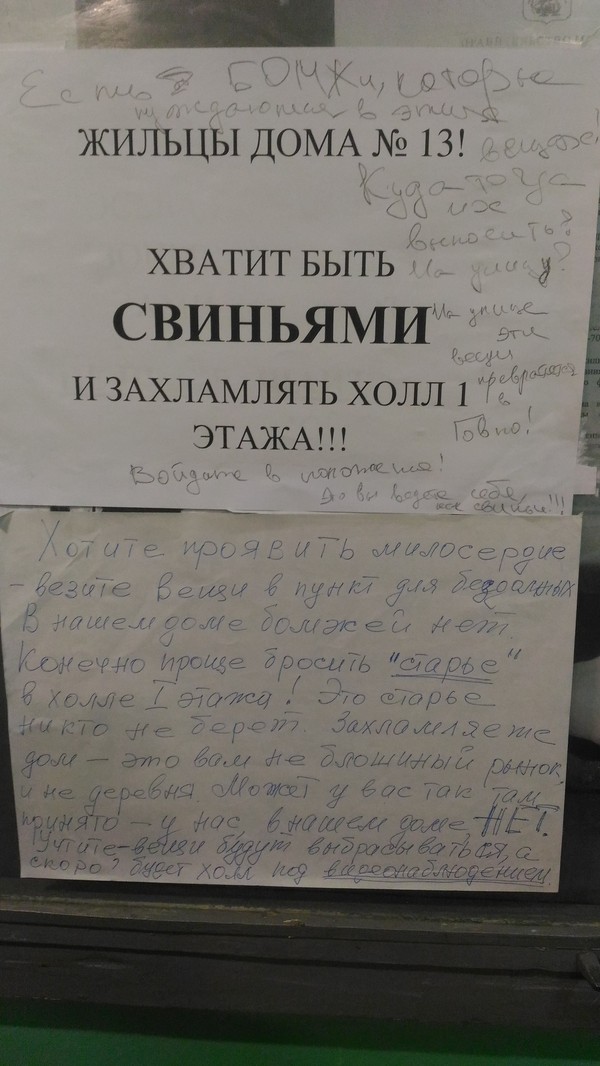 Есть БОМЖи, которые
нуждаются в этих
вещах!
ЖИЛЬЦЫ ДОМА № 13!
Куда тогда
их
выносить?
На улицу?
ХВАТИТ БЫТЬ
СВИНЬЯМИ
На улице
эти
вещи
превратятся
в
Говно!
И ЗАХЛАМЛЯТЬ ХОЛЛ 1
ЭТАЖА!!!
Войдите в положение!
А то вы ведёте себя,
как свиньи!!!
Хотите проявить милосердие
– везите вещи в пункт для бездомных
В нашем доме бомжей нет.
Конечно проще бросить "старье"
в холле I этажа! Это старье
никто не берет. Захламляете
дом – это вам не блошиный рынок,
и не деревня. Может у вас так там
принято – у нас, в нашем доме, НЕТ.
Учтите – вещи будут выбрасываться, а
скоро будет холл под видеонаблюдением.